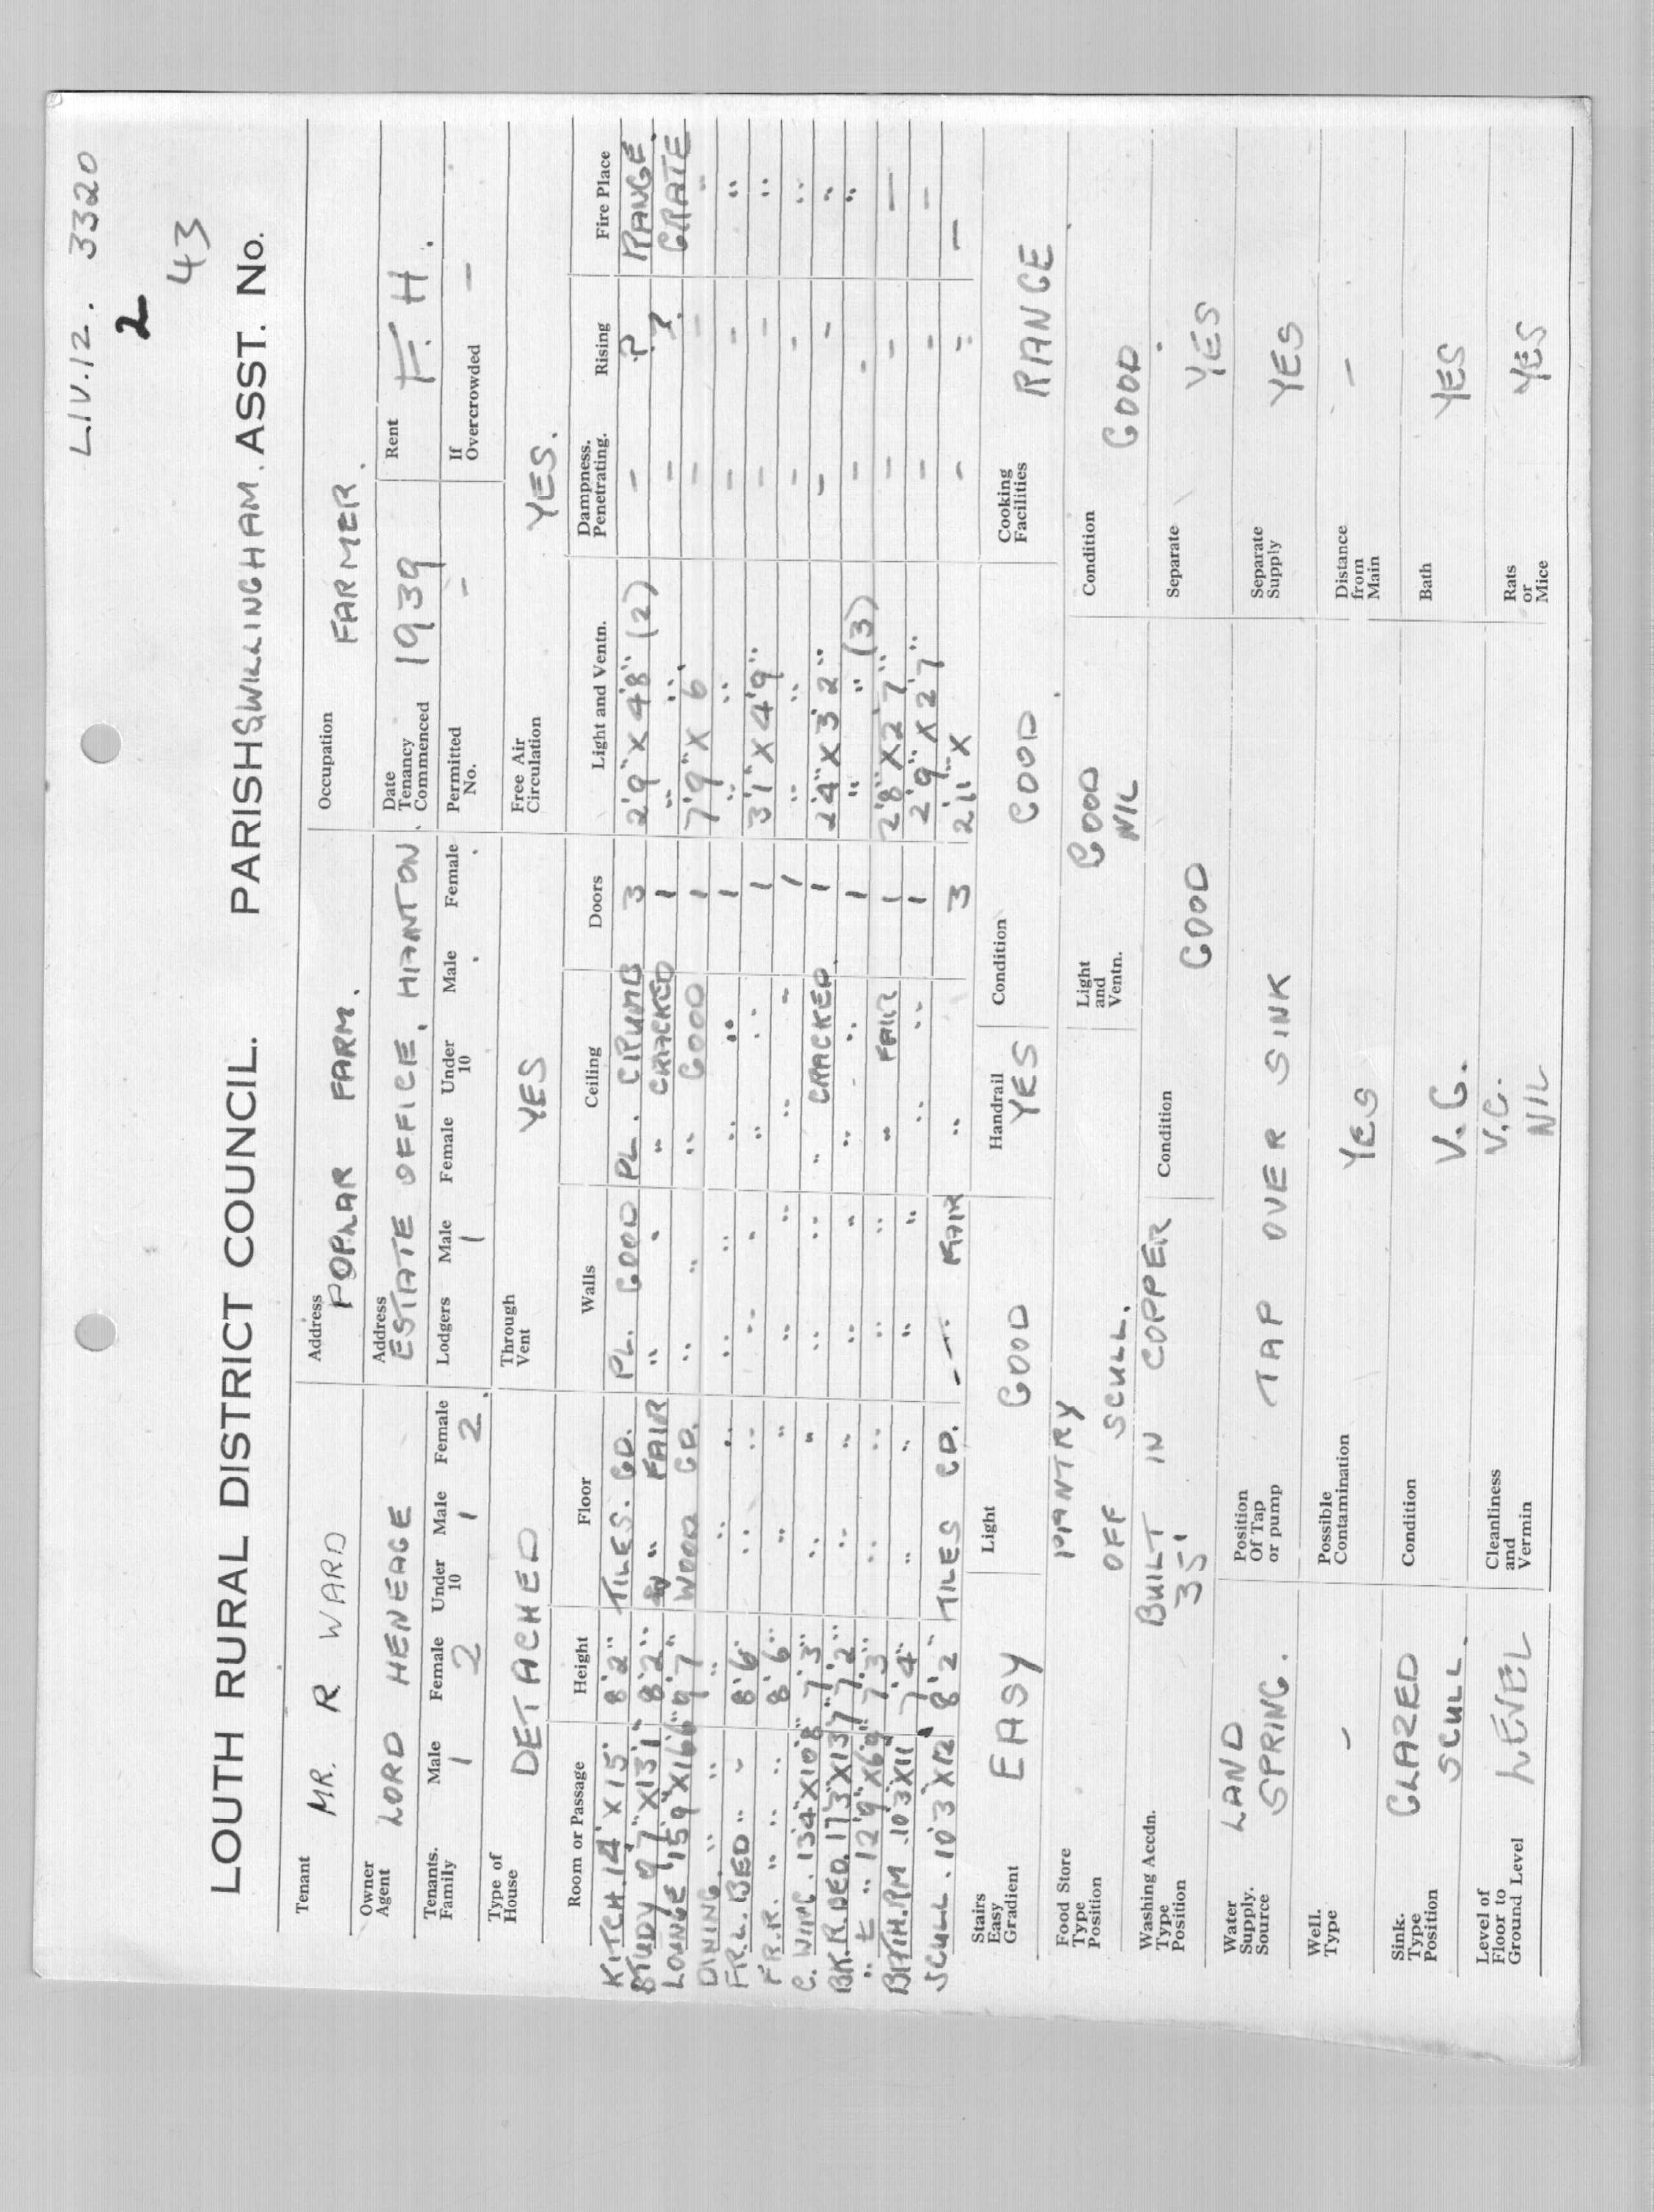 LIV.12. 3320
2
43
LOUTH RURAL DISTRICT COUNCIL. PARISH S. WILLINGHAM. ASST. No.
Tenant MR. R WARD Address POPLAR FARM. Occupation FARMER.
Owner Agent LORD HENEAGE Address ESTATE OFFICE, HAINTON. Date Tenancy Commenced 1939 Rent F.H.
Tenants. Family Male 1 Female 2 Under 10 Male 1 Female 2. Lodgers Male 1 Female Under 10 Male . Female . Permitted No. - If Overcrowded -
Type of House DETACHED Through Vent YES Free Air Circulation YES.
Room or Passage Height Floor Walls Ceiling Doors Light and Ventn. Dampness. Penetrating. Rising Fire Place
KITCH. 14' X 15' 8'2" TILES. GD. PL. GOOD PL. CRUMB 3 2'9" X 4'8" (2) - ? RANGE.
STUDY 9'7" X 13'1" 8'2" " FAIR " " " CRACKED 1 " " - ? GRATE
LOUNGE 15'9" X 16'6" 9'7" WOOD GD. " " " GOOD 1 7'9" X 6' - - "
DINING. " " " " " " " " " 1 " " - - "
FR.L. BED " " 8'6" " " " " " " 1 3'1" X 4'9" - - "
F.R.R. " " " 8'6" " " " " " " 1 " " - - "
C. WING. 13'4" X 10'8" 7'3" " " " " " CRACKED. 1 2'4" X 3'2" - - "
BK.R. BED. 17'3" X 13'7" 7'2" " " " " " " 1 " " (3) - - "
" L " 12'9" X 6'9" 7'3" " " " " " FAIR 1 2'8" X 2'7" - - -
BATH.RM 10'3" X 11' 7'4" " " " " " " 1 2'9" X 2'7" - - -
SCULL. 10'3 X 12' 8'2" TILES GD. - - FAIR " 3 2'11" X - - -
Stairs Easy Gradient EASY Light GOOD Handrail YES Condition GOOD. Cooking Facilities RANGE.
Food Store Type Position PANTRY OFF SCULL. Light and Ventn. GOOD NIL Condition GOOD.
Washing Accdn. Type Position BUILT IN COPPER 35' Condition GOOD Separate YES
Water Supply. Source LAND SPRING. Position Of Tap or pump TAP OVER SINK Separate Supply YES
Well. Type - Possible Contamination YES Distance from Main -
Sink. Type Position GLAZED SCULL. Condition V.G. Bath YES
Level of Floor to Ground Level LEVEL Cleanliness and Vermin V.G. NIL Rats or Mice YES